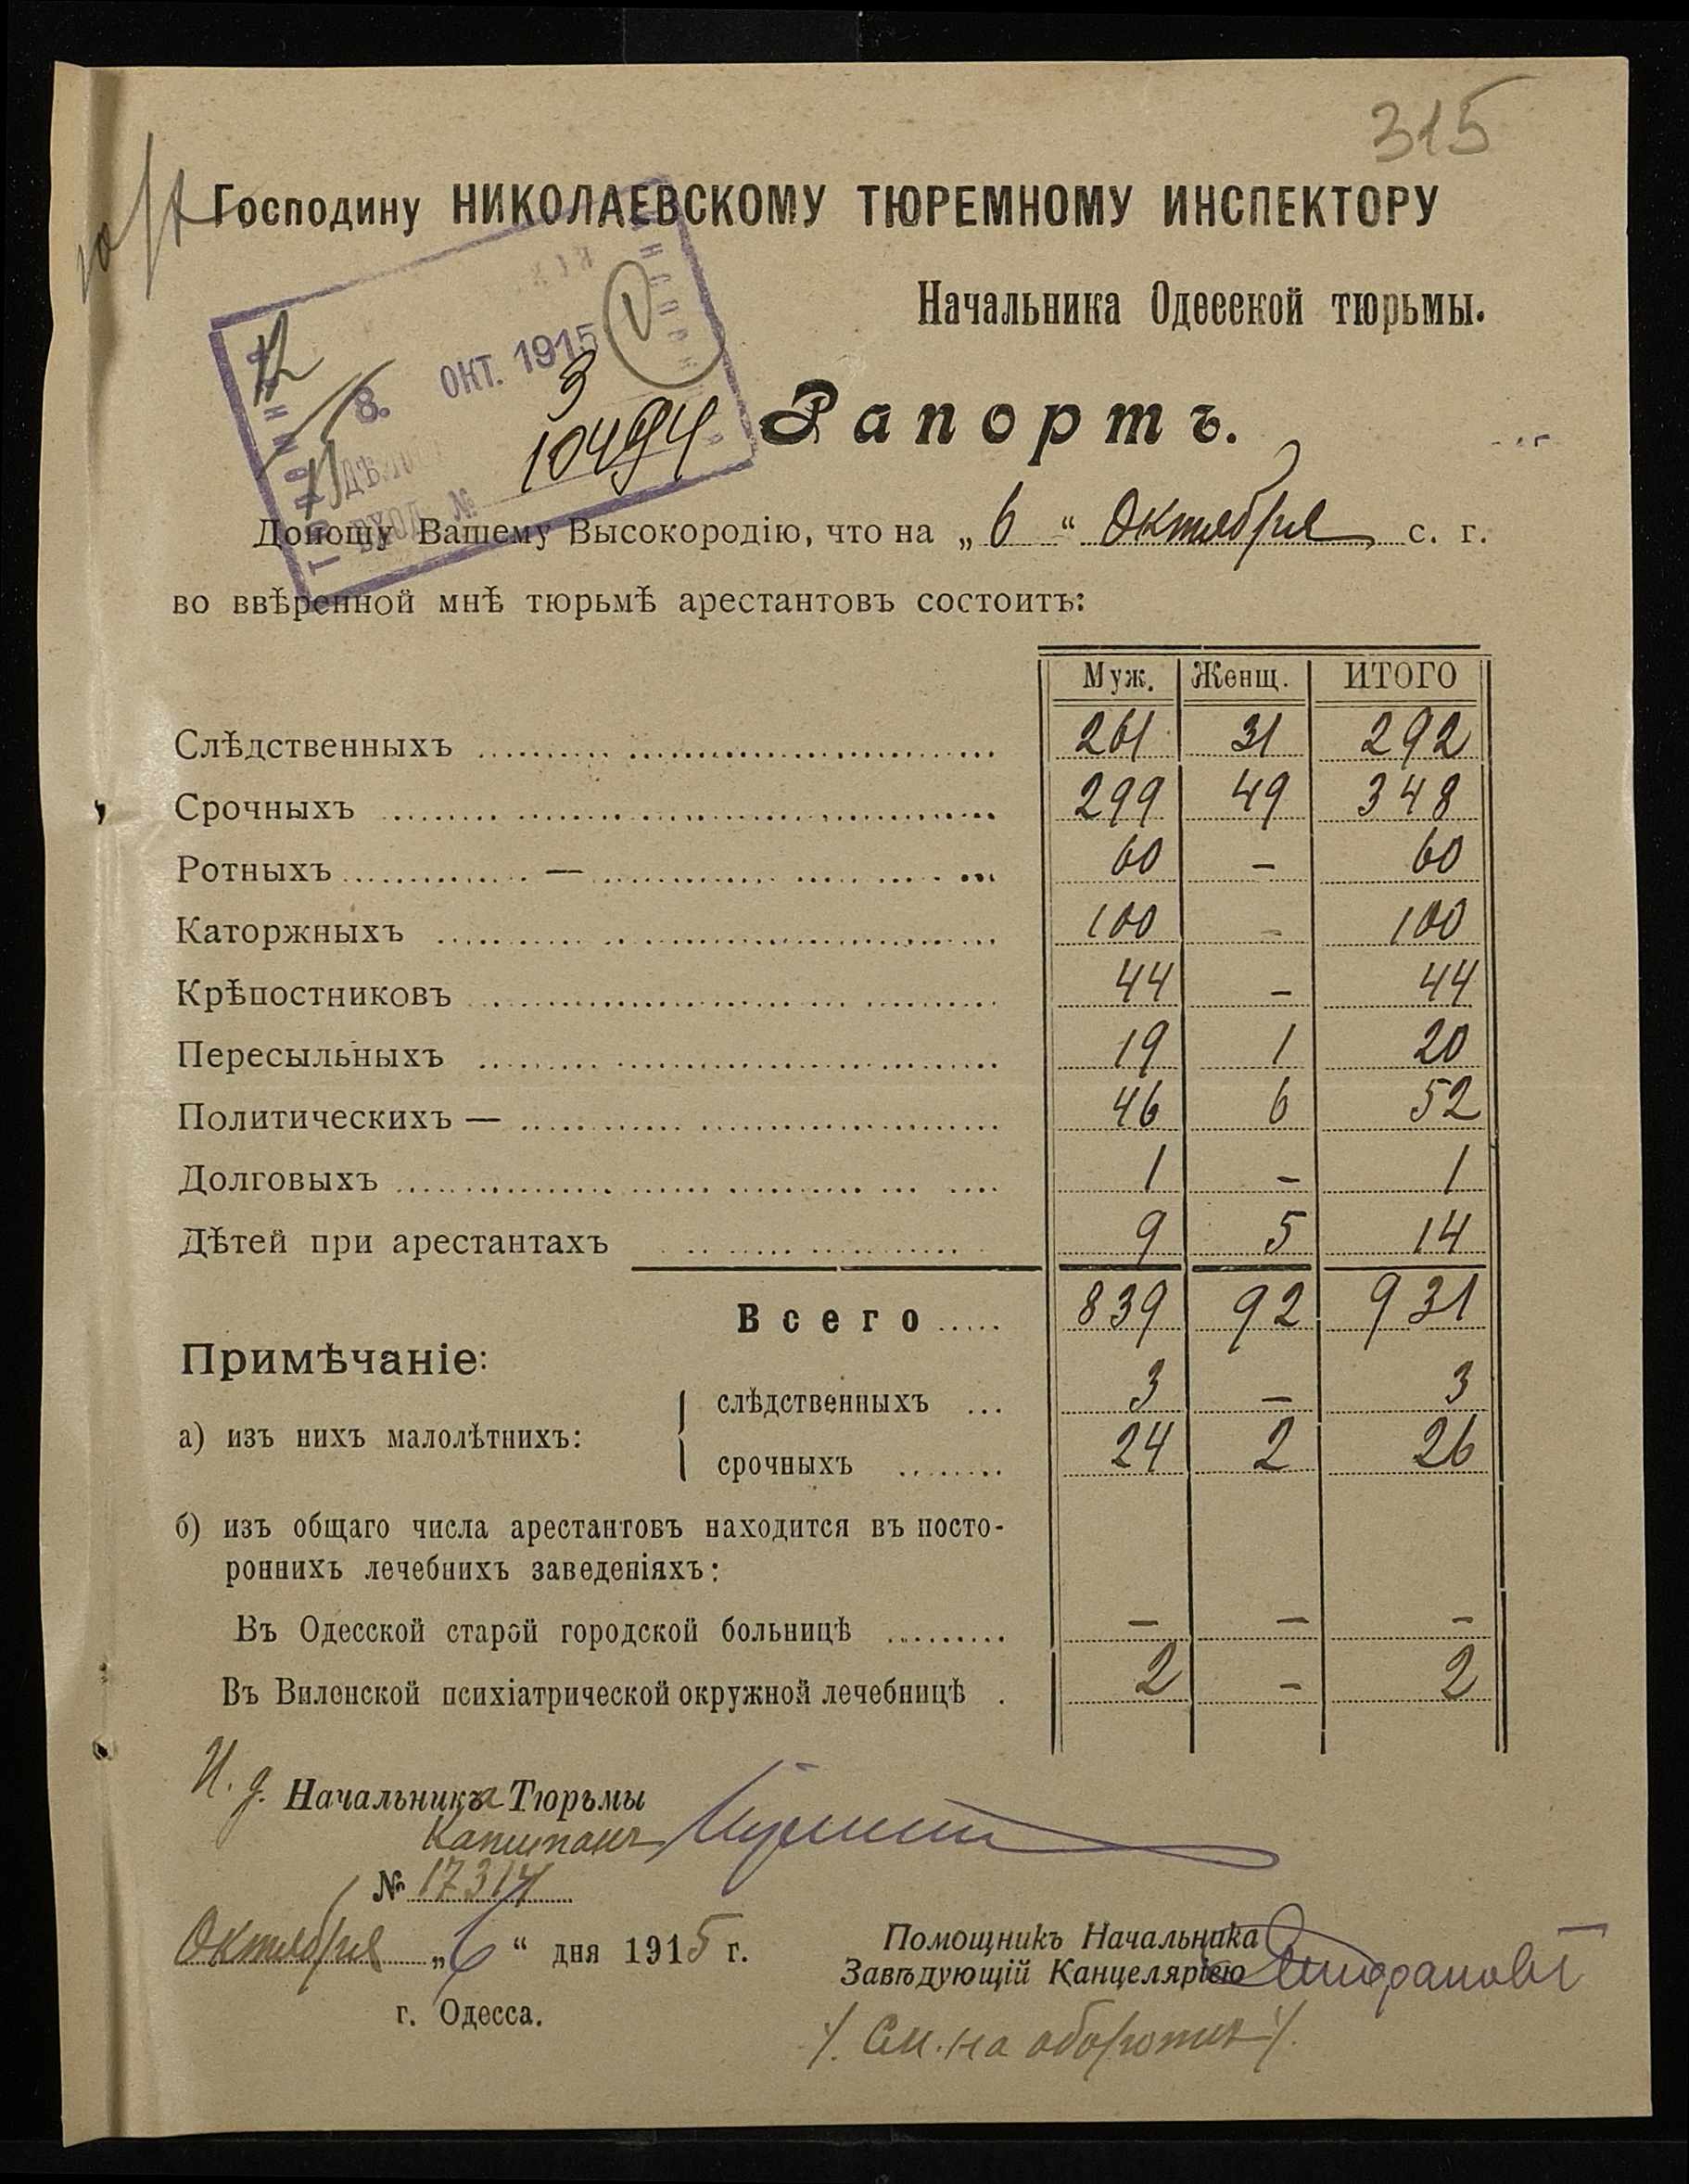 315
Господину НИКОЛАЕВСКОМУ ТЮРЕМНОМУ ИНСПЕКТОРУ
Начальника Одесской тюрьмы.
8. ОКТ. 1915
3
ВХОД. № 10494
Рапортъ.
Доношу Вашему Высокородію, что на „6“ Октября с. г.
во ввѣренной мнѣ тюрьмѣ арестантовъ состоитъ:
Муж. Женщ. ИТОГО
Слѣдственныхъ 261 31 292
Срочныхъ 299 49 348
Ротныхъ — 60 — 60
Каторжныхъ 100 — 100
Крѣпостниковъ 44 — 44
Пересыльныхъ 19 1 20
Политическихъ — 46 6 52
Долговыхъ 1 — 1
Дѣтей при арестантахъ 9 5 14
Всего 839 92 931
Примѣчаніе:
а) изъ нихъ малолѣтнихъ:
слѣдственныхъ 3 — 3
срочныхъ 24 2 26
б) изъ общаго числа арестантовъ находится въ посто-
роннихъ лечебнихъ заведеніяхъ:
Въ Одесской старой городской больницѣ — — —
Въ Виленской психіатрической окружной лечебницѣ 2 — 2
И. д. Начальника Тюрьмы
Капитанъ
№ 17314
Октября „6“ дня 1915 г.
г. Одесса.
Помощникъ Начальника
Завѣдующій Канцеляріею
/. См. на оборотѣ /.